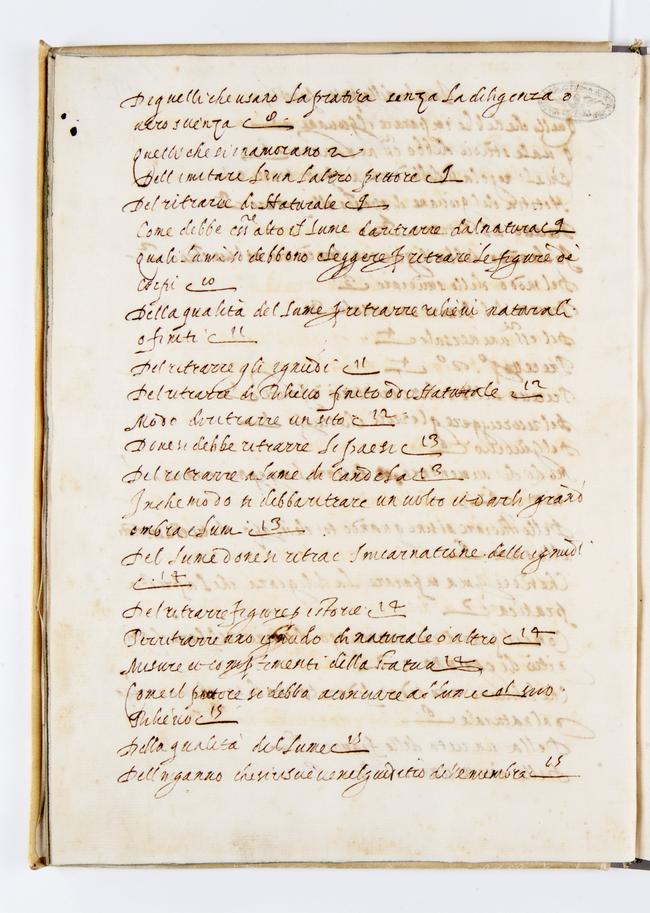 Di quelli che usano la pratica senza la diligenza o
vero scienza c 8
quelli che si inamorano
Dell imitare l'un l'altro pittore c 9
Del ritrarre di Naturale c 9
Come debbe esser alto il lume da ritrarre dal natural 9
quali lumi si debbono eleggere p ritrare le figure de
corpi c 10
Della qualità del lume p ritrarre relievi naturali
o finiti c 11
Del ritrarre gli ignudi c 11
Del ritrarre di Rilievo finto o di Naturale c 12
Modo di ritrarre un sito c 12
Dove si debbe ritrarre li paesi c 13
Del ritrarre a lume di Candela c 13
In che modo si debba ritrare un volto et darli grand
ombra e lum c 13
Del lume dove si ritrae l'incarnatione delli ignudi
c 14
Del ritrarre figure p istorie c 14
Per ritrarre uno ignudo di naturale o altro c 14
Misure et compartimenti della statua 14
Come il pittore si debba aconciare al lume col suo
Rilievo c 15
Della qualità del lume c 15
Dell'inganno che si riceve nel giuditio de le membra 15